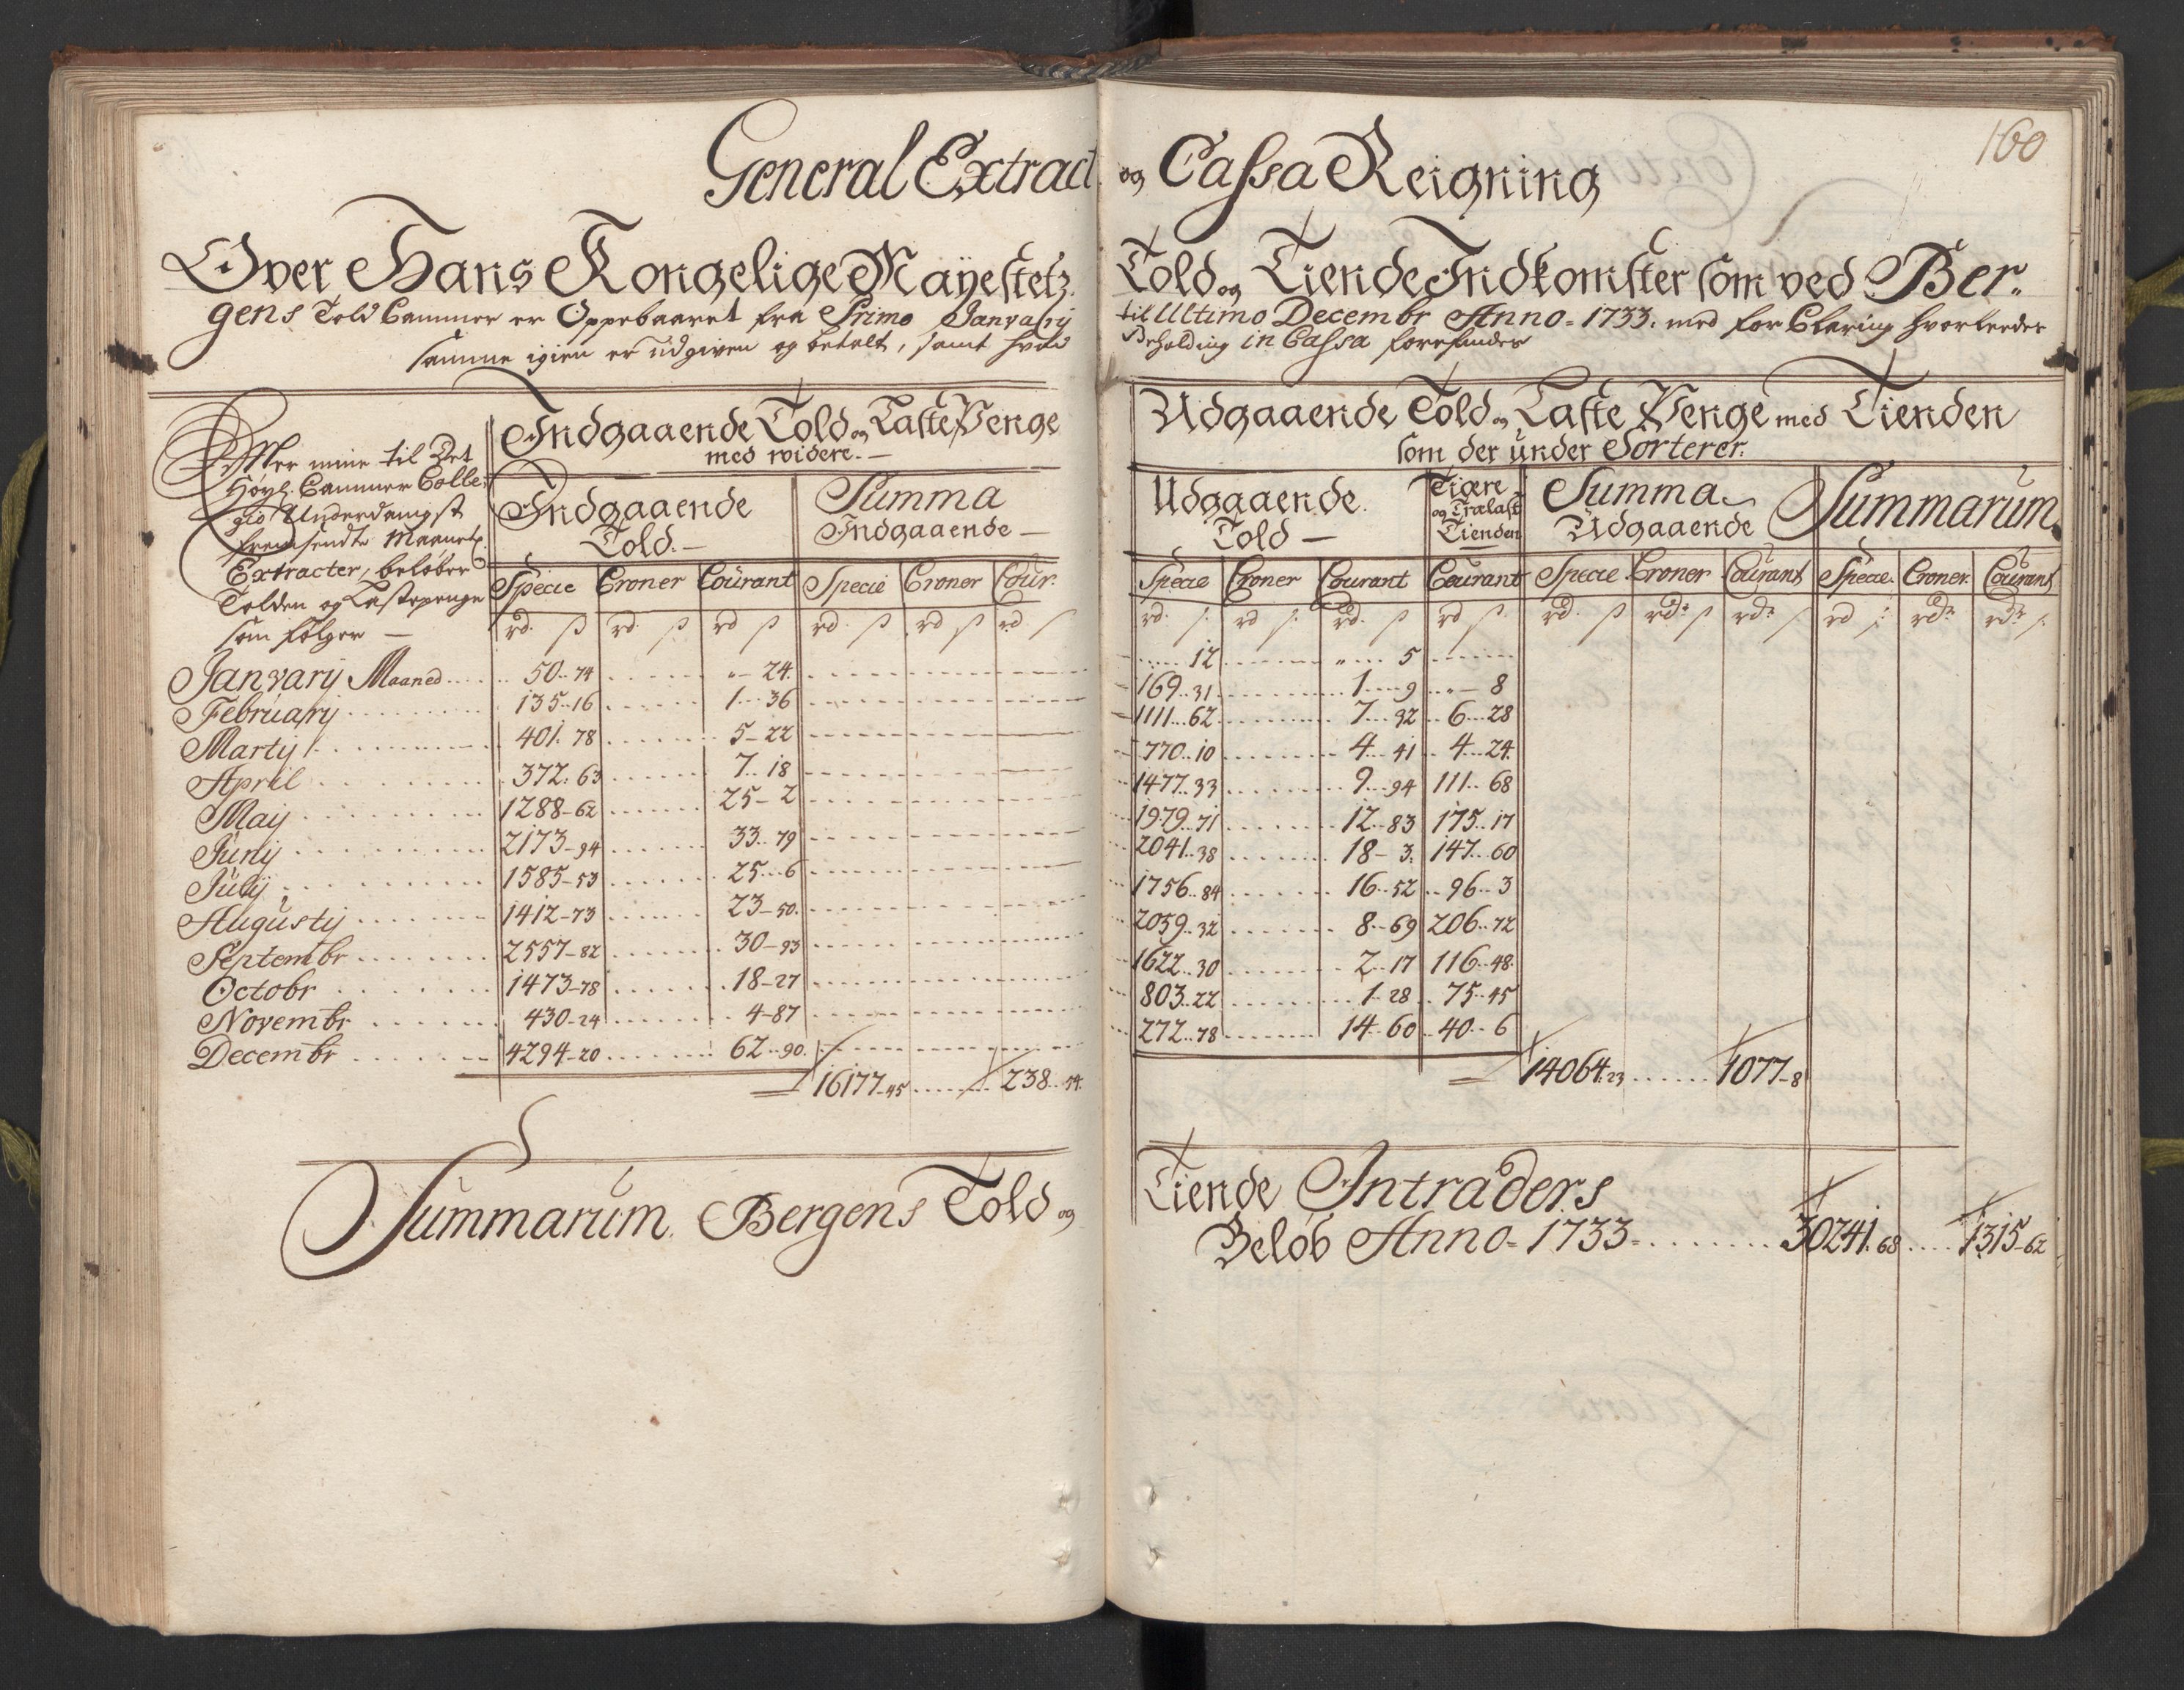 160
General Extract og Cassa Reigning
Over Hans Kongelige Mayestetz Told og Tiende Indkomster som ved Ber-
gens Told Cammer er Oppebaaret fra Primo Janvarij til Ultimo Decembr Anno 1733. med forClaring hvorledes
samme igien er udgiven og betalt, samt hvad Beholding in Cassa forefindes
Efter mine til Det
Höyl. Cammer Colle-
gio Underdanigst
fremsendte Maanetl.
Extracter, beløber
Tolden og Lastepenge
som følger —
Indgaaende Told og Laste Penge
med widere. —
Indgaaende
Told. —
Summa
Indgaaende —
Specie Croner Courant Specie Croner Cour.
rd. ß rd. ß rd ß rd. ß rd ß rd ß
Udgaaende Told og Laste Penge med Tienden
som der under Sorterer.
Udgaaende
Told —
Tiære
og Trælast
Tienden
Summa
Udgaaende
Summarum
Specie Croner Courant Courant Specie Croner Courant Specie. Croner. Courant
rd. ß rd ß rd. ß rd ß rd. ß rd. ß rd. ß rd ß rd. rd. ß
Janvarij Maaned 50.. 74 " — 24. 12 " 5
February 135..16 1 36 169..31 1 9 " — 8
Martij 401. 78 5 — 22 1111..62 7 92 6 28
April 372. 63 7.. 18 770..10 4 41 4 24
Maij 1288 — 62 25 — 2 1477..33 9 94 111.. 68
Junij 2173 — 94 33.. 79 1979..71 12..83 175..17
Julij 1585 — 53 25 6 2041..38 18 — 3. 147..60
Augustij 1412 — 73 23 — 50. 1756..84 16..52 96..3
Septembr 2557 — 82 30 — 93 2059..32 8..69 206..72
Octobr 1473 — 78 18 — 27 1622..30 2..17 116..48
Novembr 430 — 24 4 — 87 803..22 1..28 75..45
Decembr 4294 — 20 62..90. 272..78 14..60 40..6
16177 — 45 238..74. 14064..23 1077 — 8
Summarum Bergens Told og Tiende Intraders
Beløb Anno 1733 30241. 68 1315 — 62